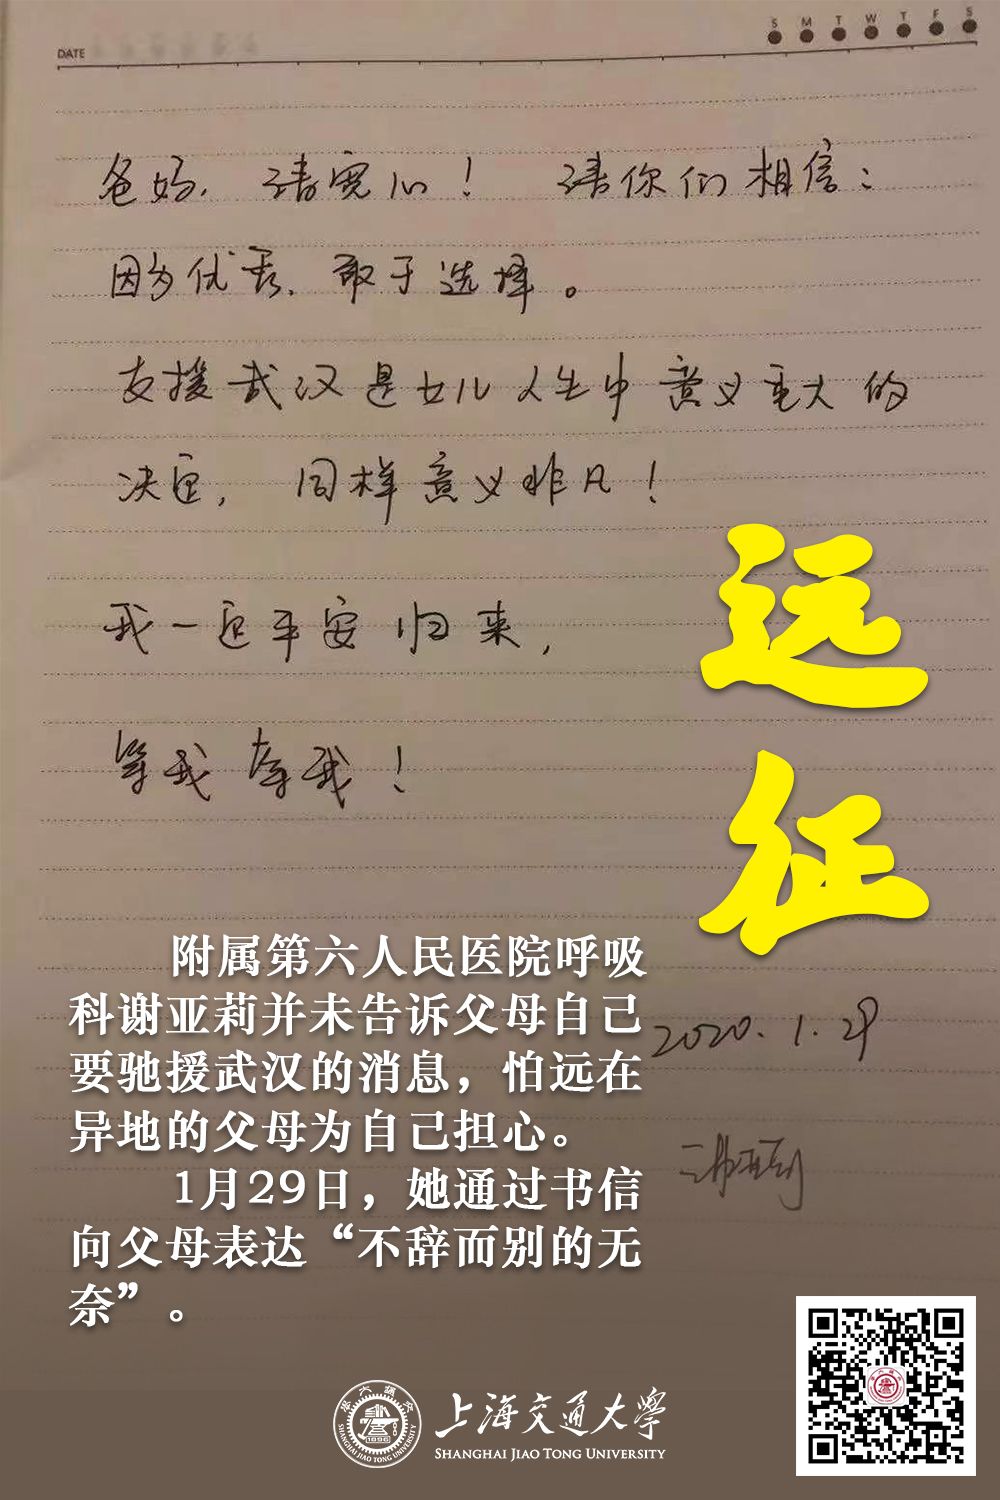 DATE
S M T W T F S
爸妈，请宽心！ 请你们相信：
因为优秀，敢于选择。
支援武汉是女儿人生中意义重大的
决定， 同样意义非凡！
我一定平安归来，
等我等我！
远征
附属第六人民医院呼吸
科谢亚莉并未告诉父母自己
要驰援武汉的消息，怕远在
异地的父母为自己担心。
1月29日，她通过书信
向父母表达“不辞而别的无
奈”。
2020.1.29
谢亚莉
上海交通大学
SHANGHAI JIAO TONG UNIVERSITY
SHANGHAI JIAO TONG UNIVERSITY
1896